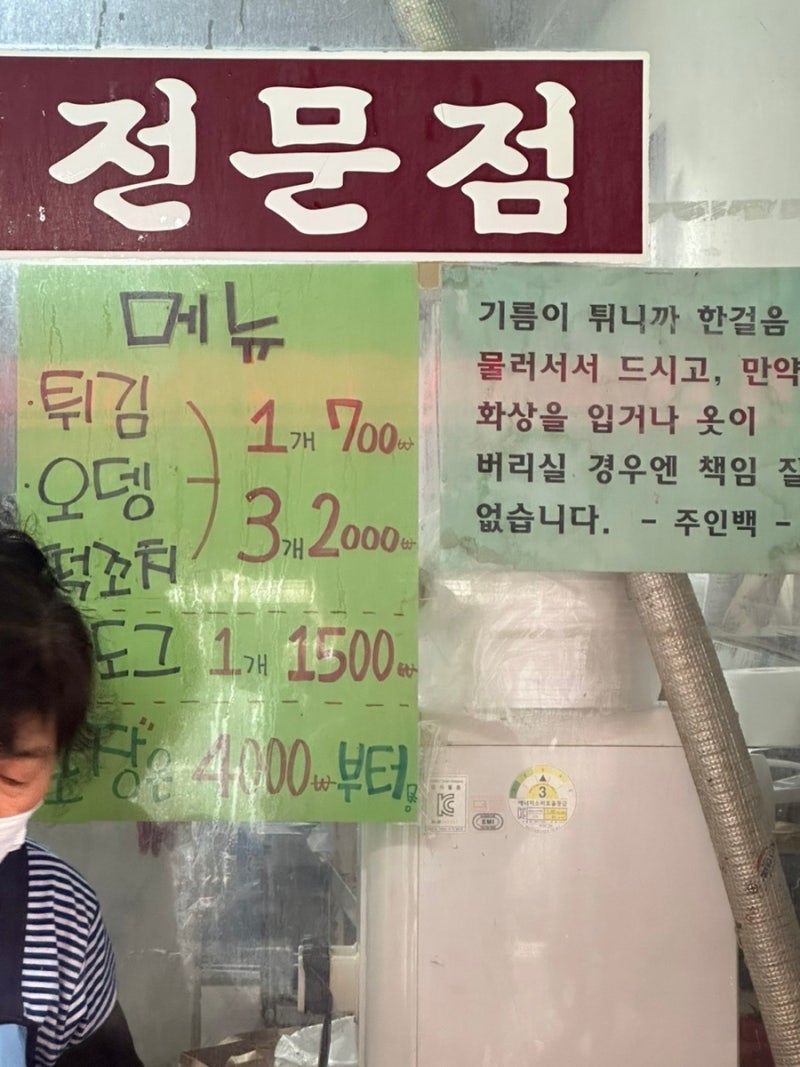 전문점
메뉴
·튀김
·오뎅
떡꼬치
1개 700₩
3개 2000₩
도그 1개 1500₩
포장은 4000₩ 부터
기름이 튀니까 한걸음
물러서서 드시고, 만약
화상을 입거나 옷이
버리실 경우엔 책임
없습니다. - 주인백 -
3
에너지소비효율등급
EMI